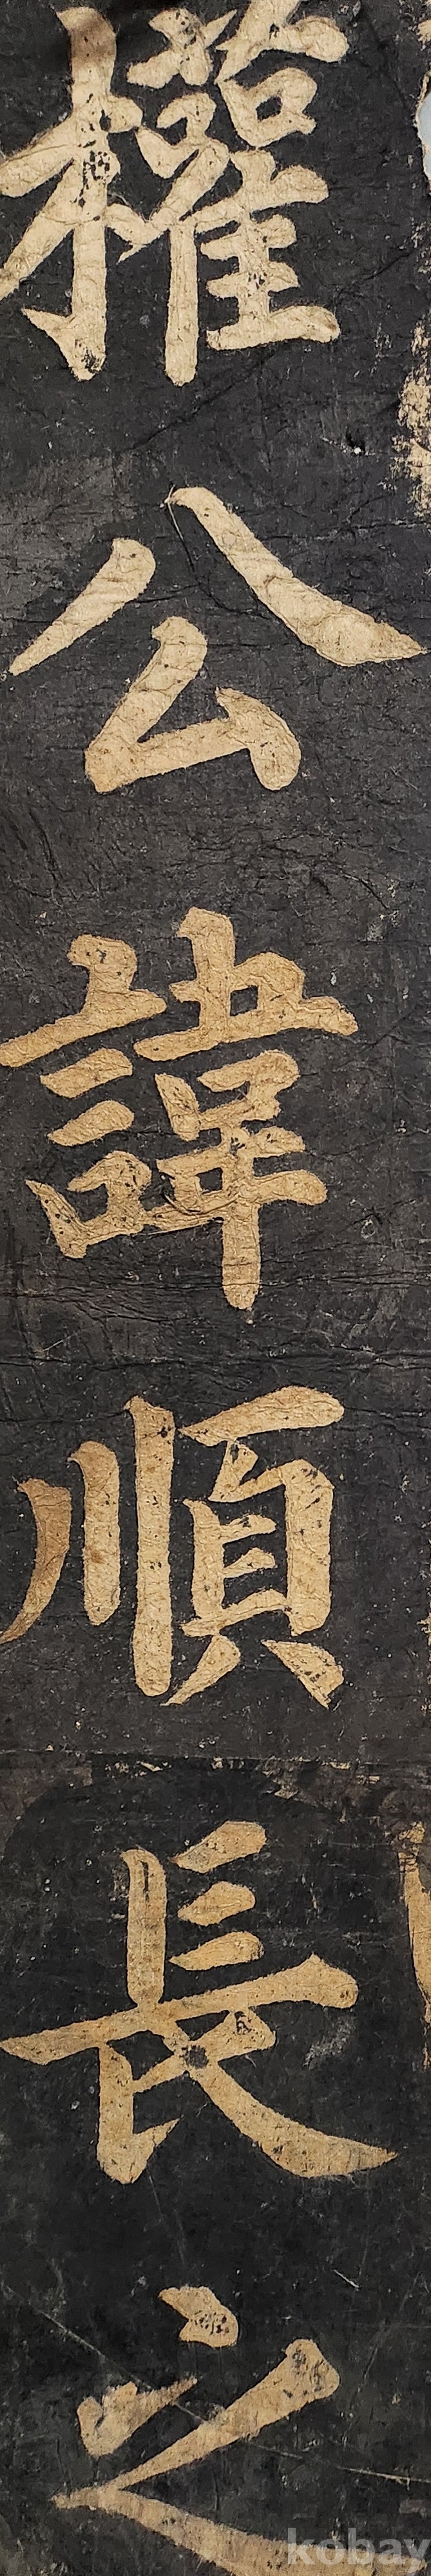 權公諱順長之
kobay